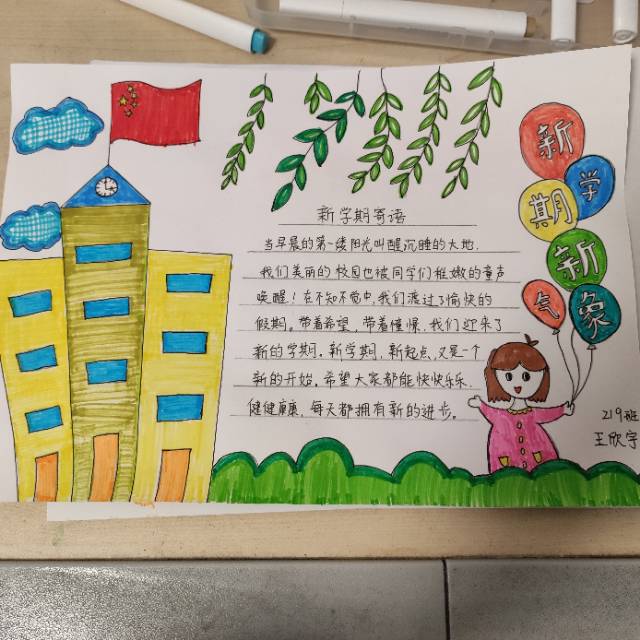 新学期寄语
当早晨的第一缕阳光叫醒沉睡的大地，
我们美丽的校园也被同学们稚嫩的童声
唤醒！在不知不觉中，我们渡过了愉快的
假期。带着希望，带着憧憬，我们迎来了
新的学期。新学期，新起点，又是一个
新的开始，希望大家都能快快乐乐、
健健康康，每天都拥有新的进步。
新
学
期
新
气
象
219班
王欣宇